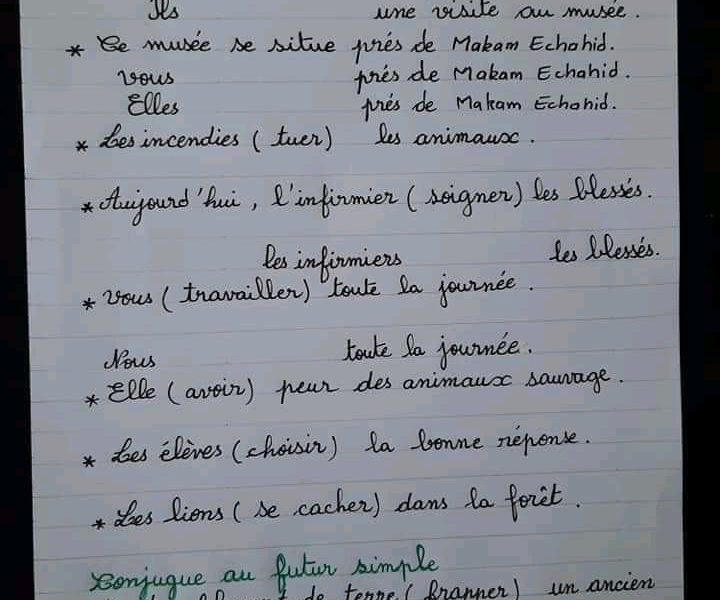 Ils une visite au musée.
* Ce musée se situe prés de Makam Echahid.
vous prés de Makam Echahid.
Elles prés de Makam Echahid.
* Les incendies ( tuer) les animaux.
* Aujourd'hui, l'infirmier ( soigner) les blessés.
les infirmiers les blessés.
* Vous ( travailler) toute la journée.
Nous toute la journée.
* Elle ( avoir) peur des animaux sauvage.
* Les élèves (choisir) la bonne réponse.
* Les lions ( se cacher) dans la forêt.
Conjugue au futur simple
de terre ( frapper) un ancien